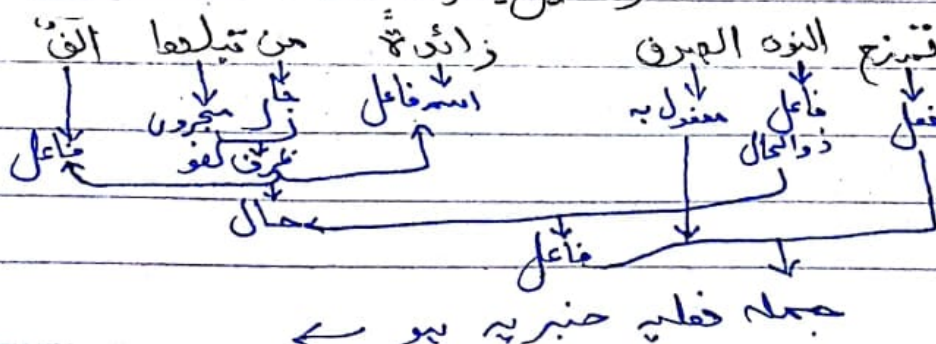 فتمنع النون الصرف زائدة من قبلها الف
فعل فاعل مفعول به اسم فاعل جار مجرور
ذوالحال ظرف لغو فاعل
حال
فاعل
جملہ فعلیہ خبریہ ہو